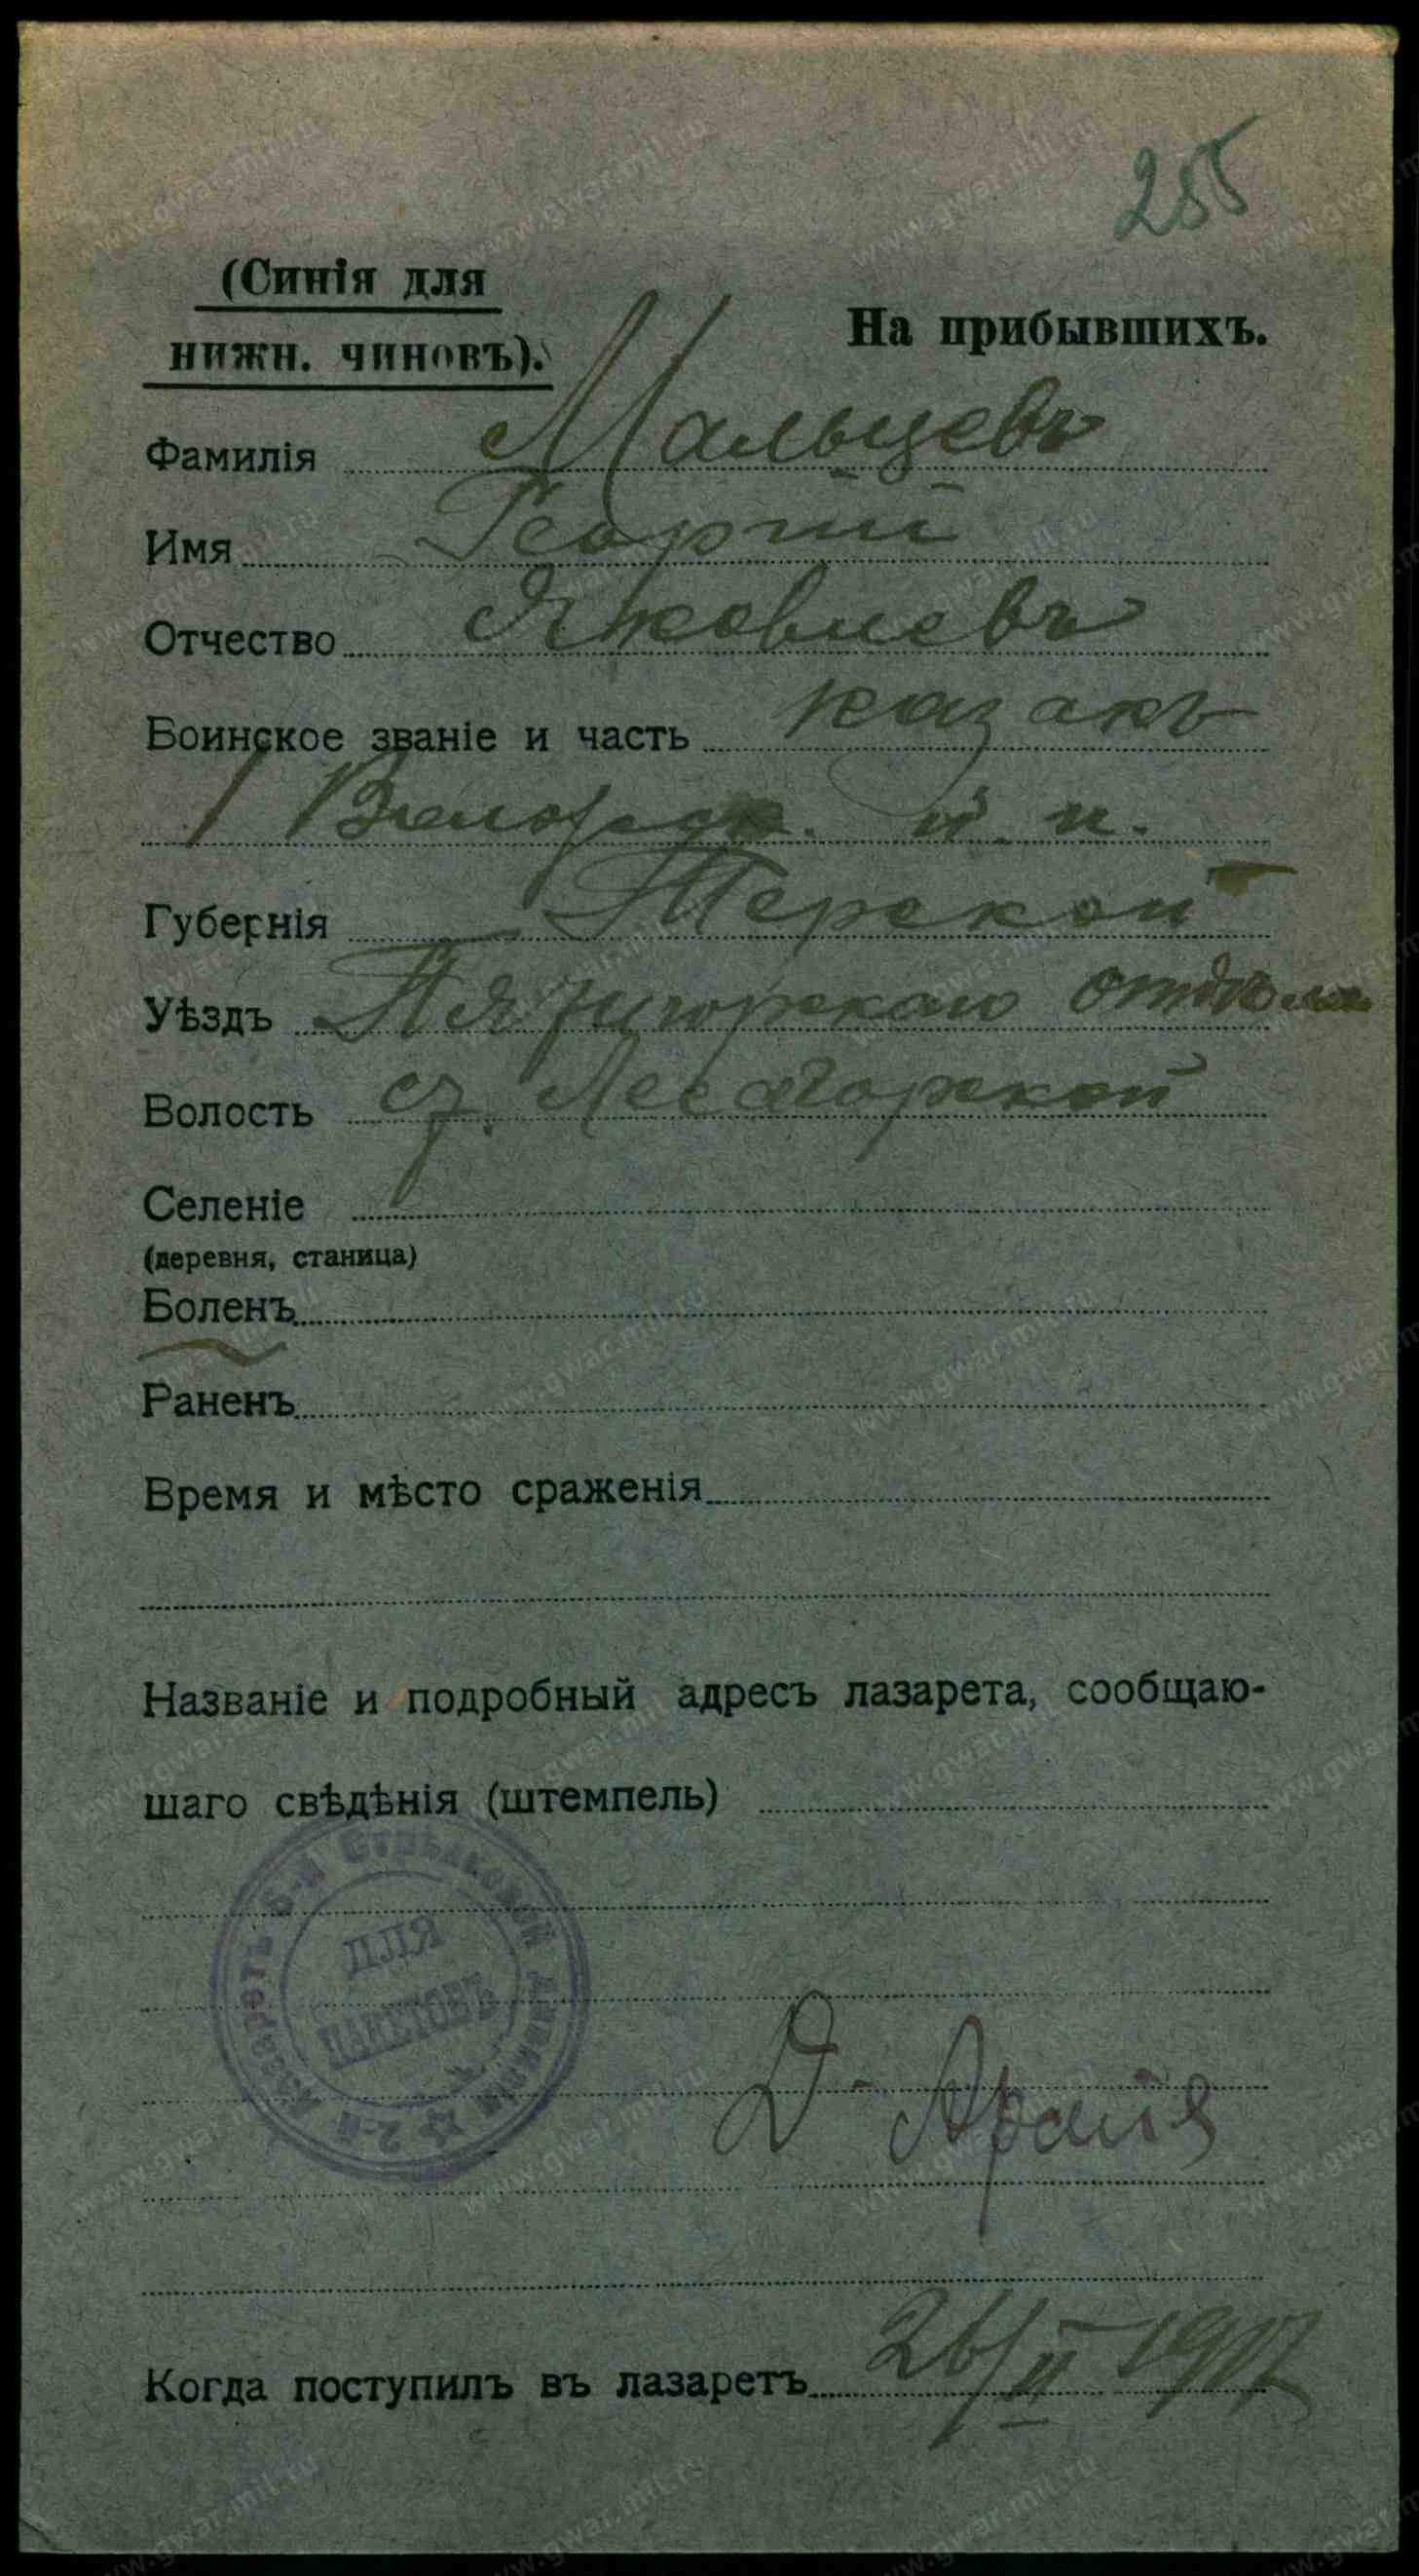 255
(Синія для
нижн. чиновъ).
На прибывшихъ.
Фамилія Мальцевъ
Имя Георгій
Отчество Яковлевъ
Воинское званіе и часть казакъ
1 Волгск. п.
Губернія Терской
Уѣздъ Пятигорскаго отдѣла
Волость ст. Лесогорской
Селеніе
(деревня, станица)
Боленъ
Раненъ
Время и мѣсто сраженія
Названіе и подробный адресъ лазарета, сообщаю-
шаго свѣдѣнія (штемпель)
2-й лазаретъ 6-й Стрѣлковой дивизіи
ДЛЯ
ПАКЕТОВЪ
Когда поступилъ въ лазаретъ 26/II 1917